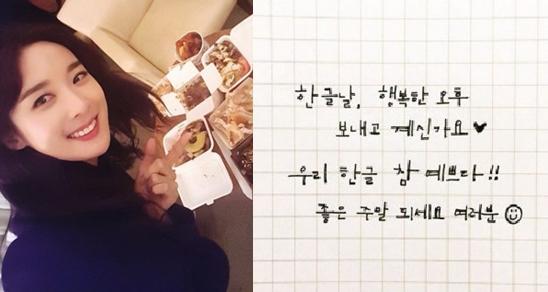 한글날, 행복한 오후
보내고 계신가요♥
우리 한글 참 예쁘다!!
좋은 주말 되세요 여러분☺